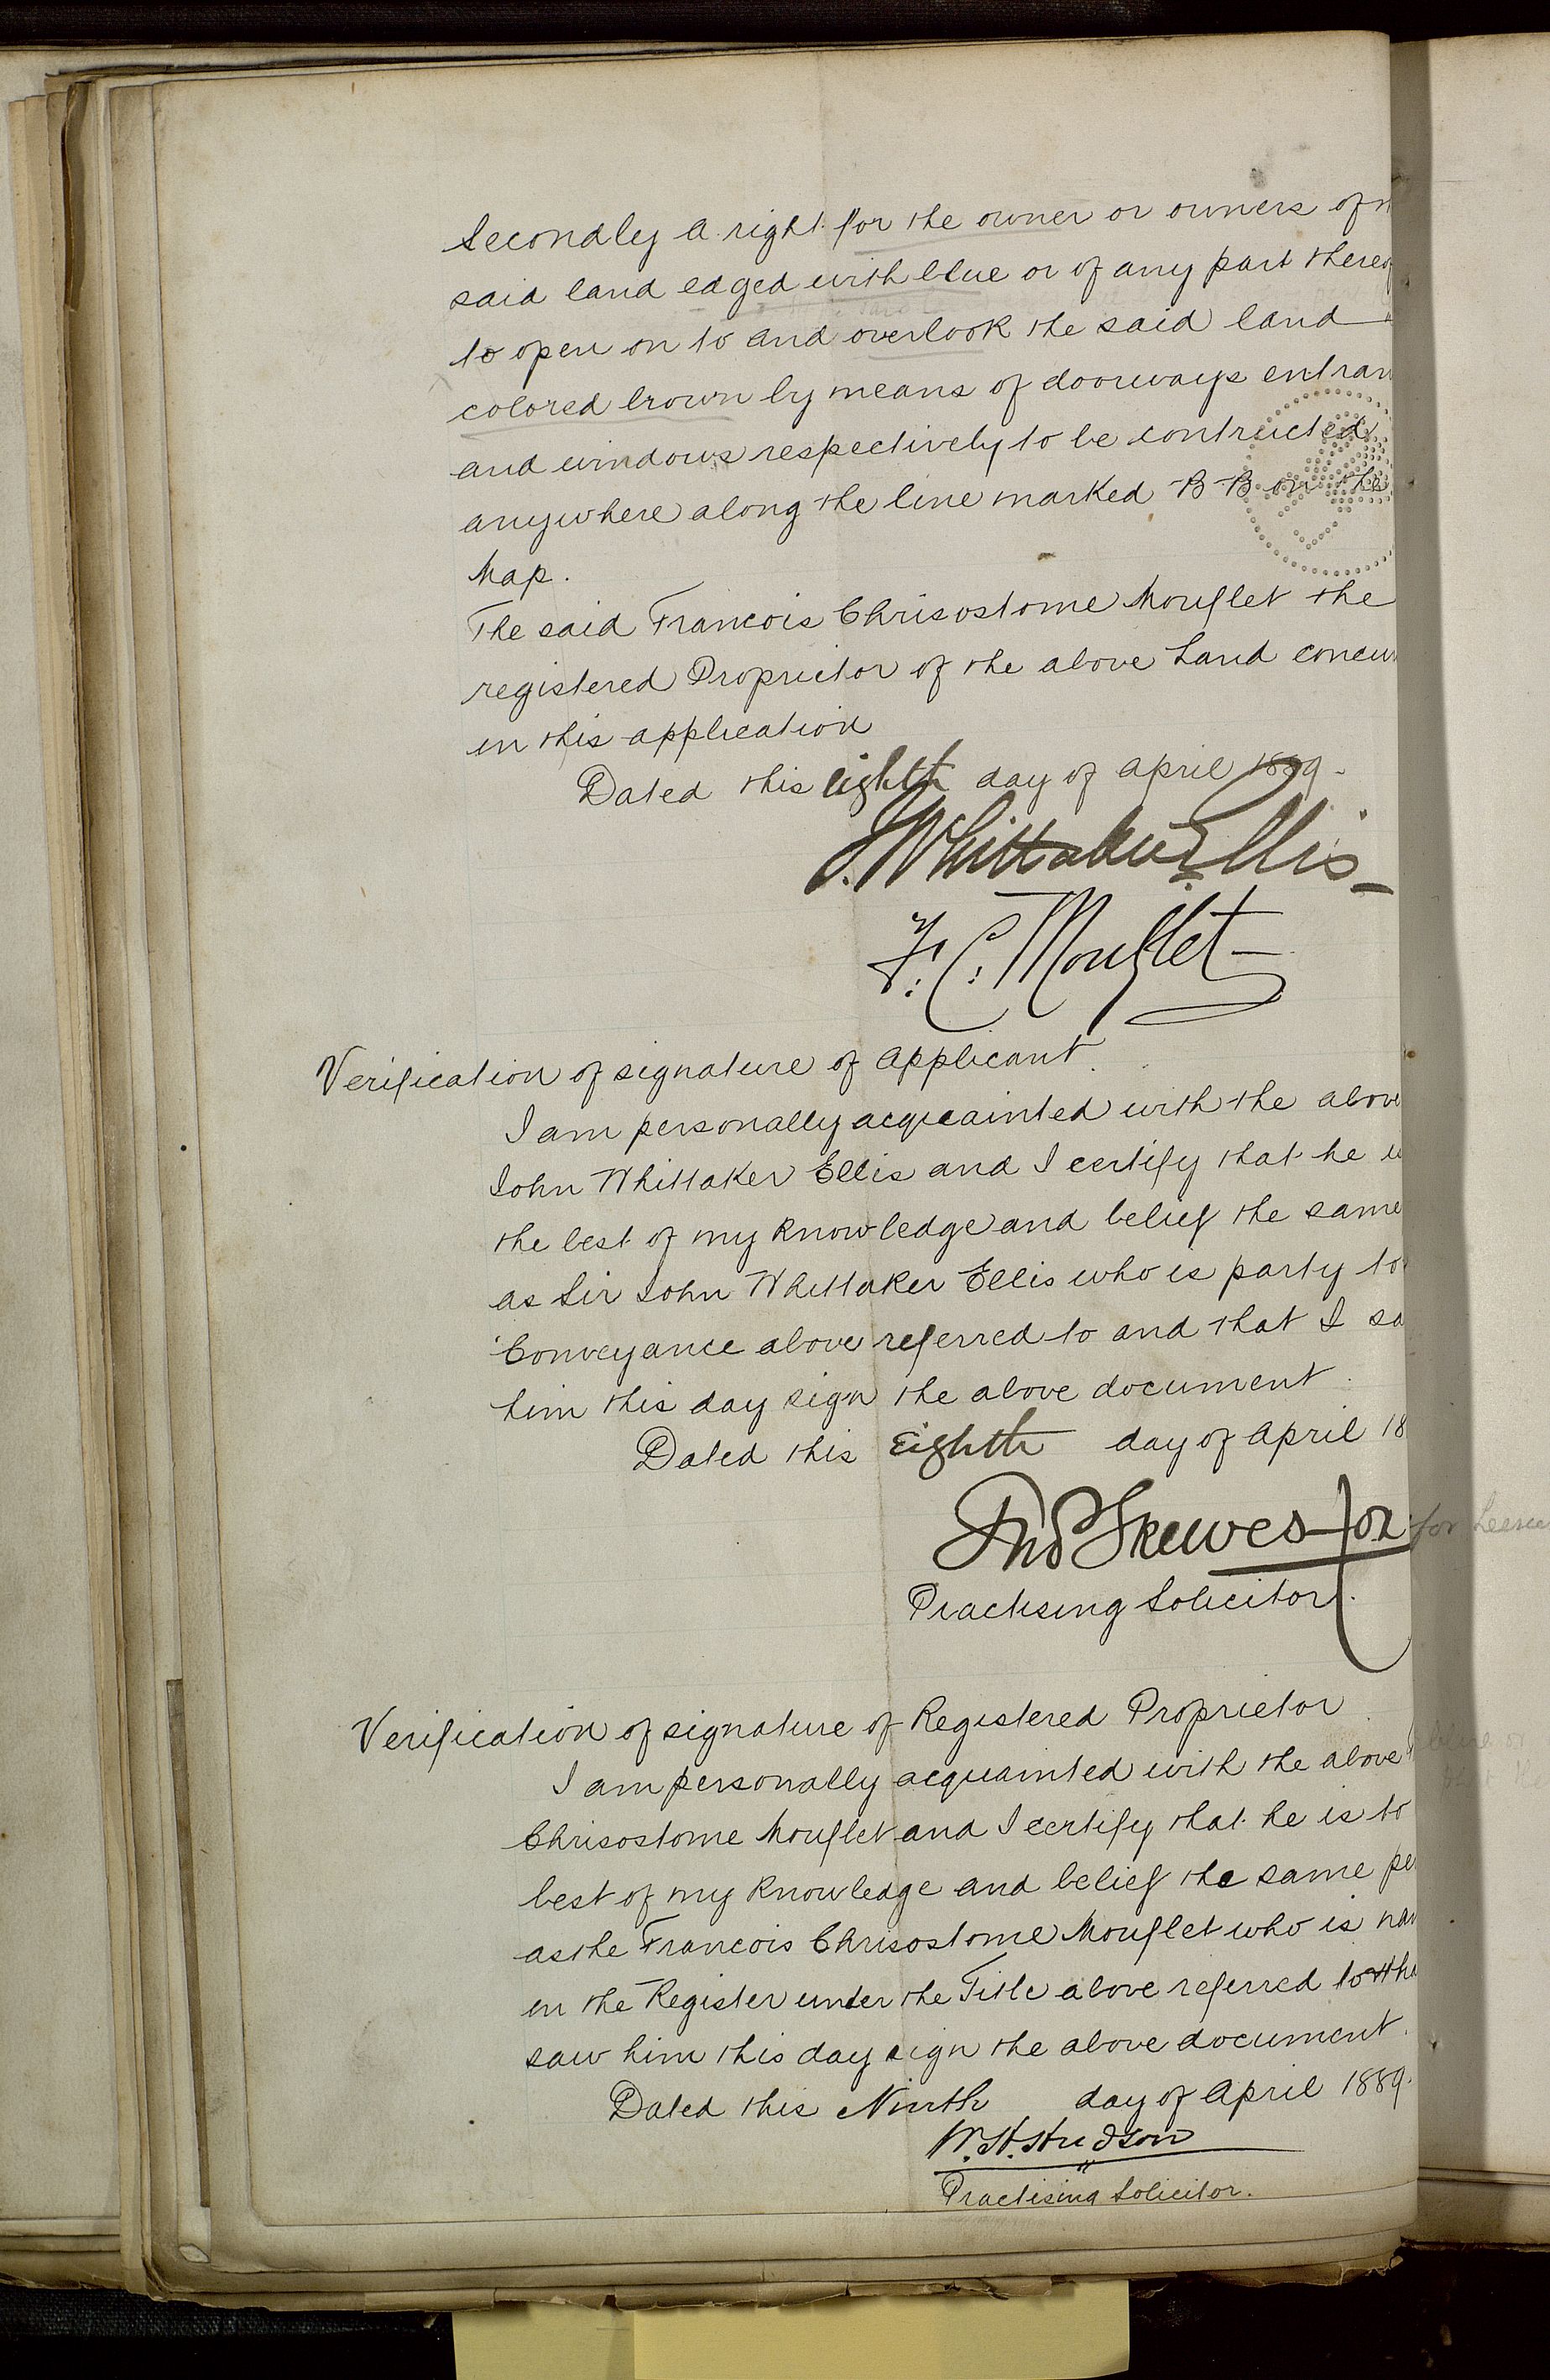 Secondly a right for the owner or owners of
said land edged with blue or of any part thereof
to open on to and overlook the said land
colored brown by means of doorways entran
and windows respectively to be contructed
anywhere along the line marked B-B on the
Map.
The said Francois Chrisostome Mouflet the
registered Proprietor of the above Land concur
in this application
Dated this eighth day of April 1889.
J. Whittaker Ellis
F. C. Mouflet
Verification of signature of Applicant.
I am personally acquainted with the above
John Whittaker Ellis and I certify that he is
the best of my knowledge and belief the same
as Sir John Whittaker Ellis who is party to
Conveyance above referred to and that I sa
him this day sign the above document.
Dated this Eighth day of April 18
Practising Solicitor.
Verification of signature of Registered Proprietor
I am personally acquainted with the above
Chrisostome Mouflet and I certify that he is to
best of my knowledge and belief the same per
as the Francois Chrisostome Mouflet who is nam
in the Register under the Title above referred to & tha
saw him this day sign the above document.
Dated this Ninth day of April 1889.
W. H. Hudson
Practising Solicitor.